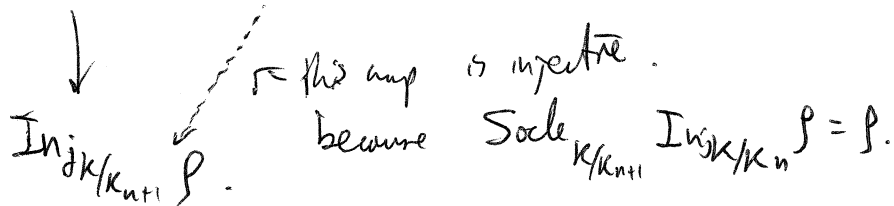 ← this map is injective.
Inj_{K/K_{n+1}} ρ. because Socle_{K/K_{n+1}} Inj_{K/K_n} ρ = ρ.